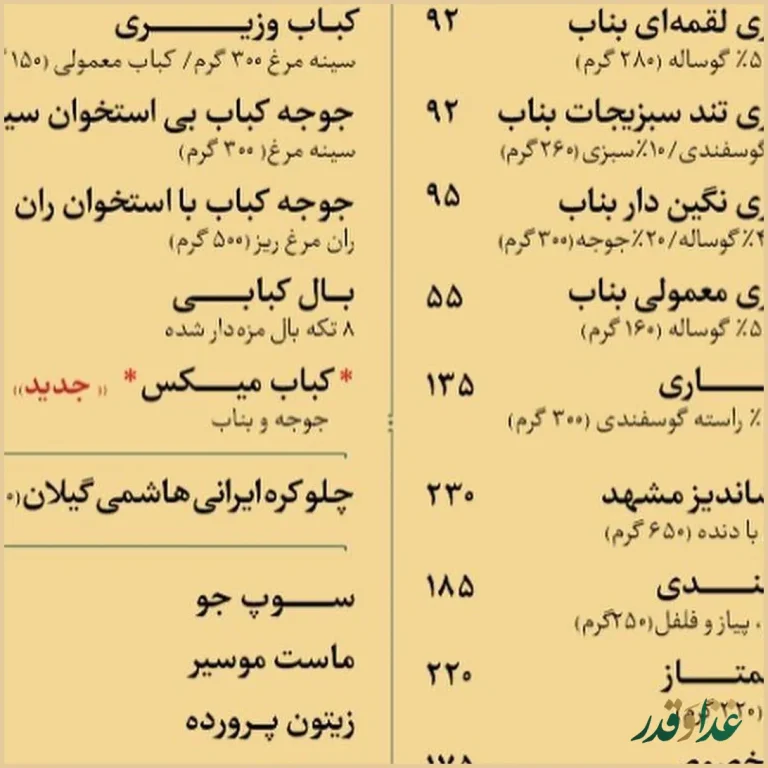 ی لقمه‌ای بناب ۹۲
۵٪ گوساله (۲۸۰ گرم)
ی تند سبزیجات بناب ۹۲
گوسفندی/۱۰٪سبزی(۲۶۰گرم)
ی نگین دار بناب ۹۵
۴٪گوساله/۲۰٪جوجه(۳۰۰گرم)
ی معمولی بناب ۵۵
۵٪ گوساله (۱۶۰ گرم)
ـاری ۱۳۵
٪ راسته گوسفندی (۳۰۰ گرم)
ـاندیز مشهد ۲۳۰
با دنده (۶۵۰ گرم)
ـندی ۱۸۵
، پیاز و فلفل(۲۵۰گرم)
ـمتـاز ۲۲۰
غذا و قدر
کباب وزیـری
سینه مرغ ۳۰۰ گرم/ کباب معمولی (۱۵۰
جوجه کباب بی استخوان سی
سینه مرغ( ۳۰۰ گرم)
جوجه کباب با استخوان ران
ران مرغ ریز(۵۰۰ گرم)
بـال کبابـی
۸ تکه بال مزه‌دار شده
*کباب میـکس* ((جدید))
جوجه و بناب
چلو کره ایرانی هاشمی گیلان(
سـوپ جو
ماست موسیر
زیتون پـرورده